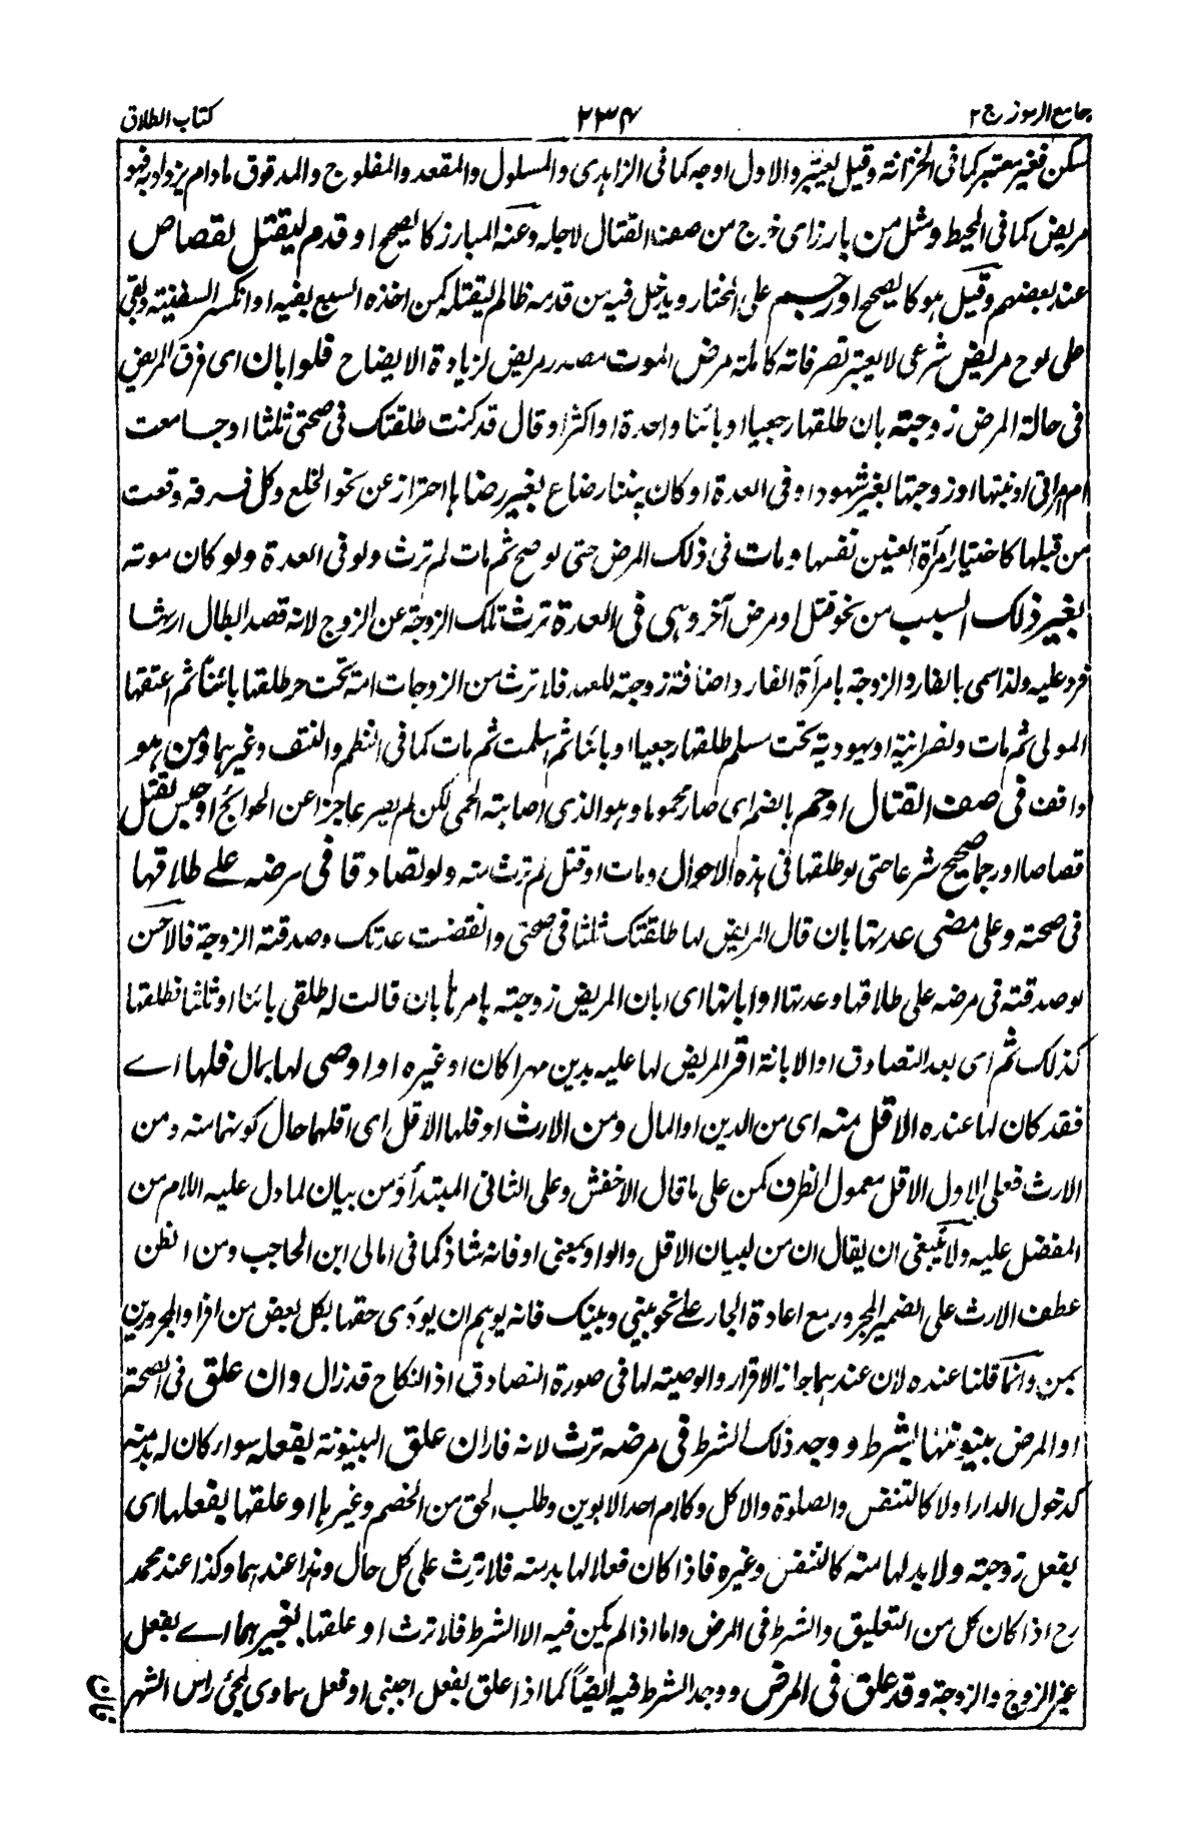 جامع الرموز ج ۲ ۲۳۴ كتاب الطلاق
سكن فغير معتبر كما فى الخزانة وقيل يعتبر والاول اوجه كما فى الزاهدى والمسلول والمقعد والمفلوج والمدقوق مادام يزداد به فهو
مريض كما فى المحيط ومثل من بارز اى خرج من صف القتال لاجله وعنه المبارز كالصحيح او قدم ليقتل لقصاص
عند بعضهم وقيل هو كالصحيح او رجم على المختار ويدخل فيه من قدمه ظالم ليقتله كمن اخذه السبع بفيه او انكسر السفينة وبقى
على لوح مريض شرعى لا يعتبر تصرفاته كاملة مرض الموت مصدر مريض لزيادة الايضاح فلو ابان اى فرق المريض
فى حالة المرض زوجته بان طلقها رجعيا او بائنا واحدة او اكثر او قال قد كنت طلقتك فى صحتى ثلثا او جامعت
ام امراتى او بنتها او زوجتها بغير شهود او فى العدة او كان بيننا رضاع بغير رضاها احتراز عن نحو الخلع وكل فرقة وقعت
من قبلها كاختيار امرأة العنين نفسها ومات فى ذلك المرض حتى لو صح ثم مات لم ترث ولو فى العدة ولو كان موته
بغير ذلك السبب من نحو قتل او مرض آخر وهى فى العدة ترث تلك الزوجة عن الزوج لانه قصد ابطال ارثها
فرد عليه ولذا سمى بالفار والزوجة بامرأة الفار واضافة زوجته للعهد فلا ترث من الزوجات امة تحت حر طلقها بائناً ثم اعتقها
المولى ثم مات ونصرانية او يهودية تحت مسلم طلقها رجعيا او بائنا ثم اسلمت ثم مات كما فى النظم والنتف وغيرهما ومن هو
واقف فى صف القتال او حم بالضم اى صار محموما وهو الذى اصابته الحمى لكن لم يصر عاجزا عن الحوائج او حبس لقتل
قصاصا او رجما صحيح شرعا حتى لو طلقها فى هذه الاحوال ومات او قتل لم ترث منه ولو تصادقا فى مرضه على طلاقها
فى صحته وعلى مضى عدتها بان قال المريض لها طلقتك ثلثا فى صحتى وانقضت عدتك وصدقته الزوجة فالاحسن
لو صدقته فى مرضه على طلاقها وعدتها او ابانها اى ابان المريض زوجته بامرها بان قالت له طلقنى بائنا او ثلثا فطلقها
كذلك ثم اى بعد التصادق او الابانة اقر المريض لها عليه بدين مهرا كان او غيره او اوصى لها بمال فلها اے
فقد كان لها عنده الاقل منه اى من الدين او المال ومن الارث او فلها الاقل اى اقلهما حال كونهما منه ومن
الارث فعلى الاول الاقل معمول الظرف كمن على ما قال الاخفش وعلى الثانى المبتدأ ومن بيان لما دل عليه اللام من
المفضل عليه ولا ينبغى ان يقال ان من لبيان الاقل والواو بمعنى او فانه شاذ كما فى امالى ابن الحاجب ومن الظن
عطف الارث على الضمير المجرور مع اعادة الجار على نحو بينى وبينك فانه يوهم ان يؤدى حقها بكل بعض من افراد المجرورين
بمن وانما قلنا عنده لان عندهما جاز الاقرار والوصية لها فى صورة التصادق اذ النكاح قد زال وان علق فى الصحة
او المرض بينونتها بشرط ووجد ذلك الشرط فى مرضه ترث لانه فار ان علق البينونة بفعله سواء كان له بد منه
كدخول الدار او لا كالتنفس والصلوة والاكل وكلام احد الابوين وطلب الحق من الخصم وغيرها او علقها بفعلها اى
بفعل زوجته ولا بد لها منه كالتنفس وغيره فاذا كان فعلا لها بد منه فلا ترث على كل حال وهذا عندهما وكذا عند محمد
رح اذا كان كل من التعليق والشرط فى المرض واما اذا لم يكن فيه الا الشرط فلا ترث او علقها بغيرهما اے بفعل
غير الزوج والزوجة وقد علق فى المرض ووجد الشرط فيه ايضاً كما اذا علق بفعل اجنبى او فعل سماوى كمجئ راس الشهر